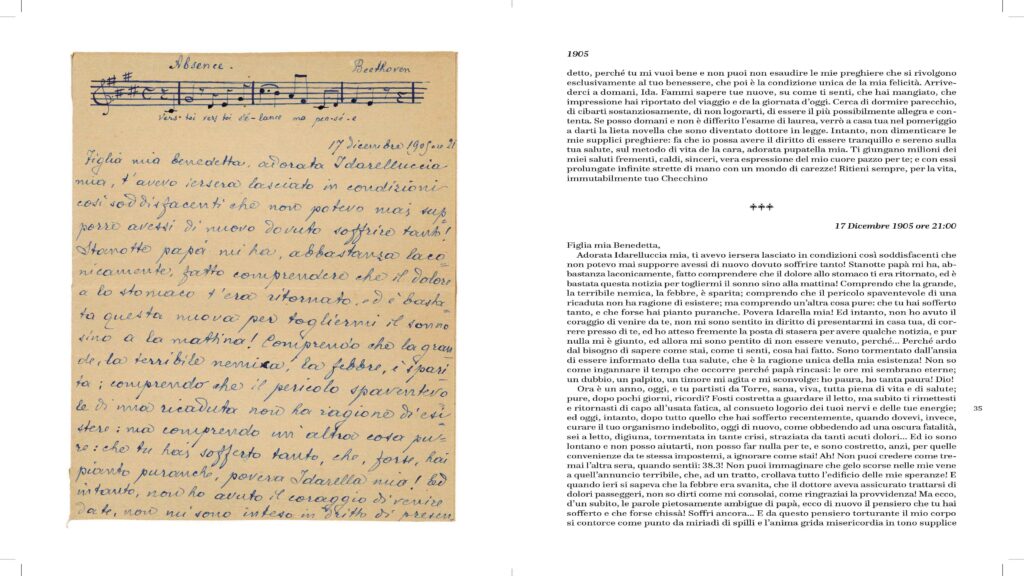 Absence.
Beethoven
Vers toi vers toi s'é-lance ma pen-sé-e
17 dicembre 1905 ore 21
Figlia mia benedetta, adorata Idarelluccia
mia, t'avevo iersera lasciato in condizioni
così soddisfacenti che non potevo mai sup
porre avessi di nuovo dovuto soffrire tanto!
Stanotte papà mi ha, abbastanza laco
nicamente, fatto comprendere che il dolore
a lo stomaco t'era ritornato, ed è basta
ta questa nuova per togliermi il sonno
sino a la mattina! Comprendo che la gran
de, la terribile nemica, la febbre, è spari
ta; comprendo che il pericolo spaventevo
le di una ricaduta non ha ragione di esi
stere: ma comprendo un'altra cosa pu-
re: che tu hai sofferto tanto, che, forse, hai
pianto puranche, povera Idarella mia! Ed
intanto, non ho avuto il coraggio di venire
da te, non mi sono inteso in dritto di presen
1905
detto, perché tu mi vuoi bene e non puoi non esaudire le mie preghiere che si rivolgono
esclusivamente al tuo benessere, che poi è la condizione unica de la mia felicità. Arrive-
derci a domani, Ida. Fammi sapere tue nuove, su come ti senti, che hai mangiato, che
impressione hai riportato del viaggio e de la giornata d'oggi. Cerca di dormire parecchio,
di cibarti sostanziosamente, di non logorarti, di essere il più possibilmente allegra e con-
tenta. Se posso domani e non è differito l'esame di laurea, verrò a casa tua nel pomeriggio
a darti la lieta novella che sono diventato dottore in legge. Intanto, non dimenticare le
mie supplici preghiere: fa che io possa avere il diritto di essere tranquillo e sereno sulla
tua salute, sul metodo di vita de la cara, adorata pupatella mia. Ti giungano milioni dei
miei saluti frementi, caldi, sinceri, vera espressione del mio cuore pazzo per te; e con essi
prolungate infinite strette di mano con un mondo di carezze! Ritieni sempre, per la vita,
immutabilmente tuo Checchino
17 Dicembre 1905 ore 21:00
Figlia mia Benedetta,
Adorata Idarelluccia mia, ti avevo iersera lasciato in condizioni così soddisfacenti che
non potevo mai supporre avessi di nuovo dovuto soffrire tanto! Stanotte papà mi ha, ab-
bastanza laconicamente, fatto comprendere che il dolore allo stomaco ti era ritornato, ed è
bastata questa notizia per togliermi il sonno sino alla mattina! Comprendo che la grande,
la terribile nemica, la febbre, è sparita; comprendo che il pericolo spaventevole di una
ricaduta non ha ragione di esistere; ma comprendo un'altra cosa pure: che tu hai sofferto
tanto, e che forse hai pianto puranche. Povera Idarella mia! Ed intanto, non ho avuto il
coraggio di venire da te, non mi sono sentito in diritto di presentarmi in casa tua, di cor-
rere presso di te, ed ho atteso fremente la posta di stasera per avere qualche notizia, e pur
nulla mi è giunto, ed allora mi sono pentito di non essere venuto, perché... Perché ardo
dal bisogno di sapere come stai, come ti senti, cosa hai fatto. Sono tormentato dall'ansia
di essere informato della tua salute, che è la ragione unica della mia esistenza! Non so
come ingannare il tempo che occorre perché papà rincasi: le ore mi sembrano eterne;
un dubbio, un palpito, un timore mi agita e mi sconvolge: ho paura, ho tanta paura! Dio!
Ora è un anno, oggi, e tu partisti da Torre, sana, viva, tutta piena di vita e di salute;
pure, dopo pochi giorni, ricordi? Fosti costretta a guardare il letto, ma subito ti rimettesti
e ritornasti di capo all'usata fatica, al consueto logorio dei tuoi nervi e delle tue energie;
ed oggi, intanto, dopo tutto quello che hai sofferto recentemente, quando dovevi, invece,
curare il tuo organismo indebolito, oggi di nuovo, come obbedendo ad una oscura fatalità,
sei a letto, digiuna, tormentata in tante crisi, straziata da tanti acuti dolori... Ed io sono
lontano e non posso aiutarti, non posso far nulla per te, e sono costretto, anzi, per quelle
convenienze da te stessa impostemi, a ignorare come stai! Ah! Non puoi credere come tre-
mai l'altra sera, quando sentii: 38.3! Non puoi immaginare che gelo scorse nelle mie vene
a quell'annuncio terribile, che, ad un tratto, crollava tutto l'edificio delle mie speranze! E
quando ieri si sapeva che la febbre era svanita, che il dottore aveva assicurato trattarsi di
dolori passeggeri, non so dirti come mi consolai, come ringraziai la provvidenza! Ma ecco,
d'un subito, le parole pietosamente ambigue di papà, ecco di nuovo il pensiero che tu hai
sofferto e che forse chissà! Soffri ancora... E da questo pensiero torturante il mio corpo
si contorce come punto da miriadi di spilli e l'anima grida misericordia in tono supplice
35